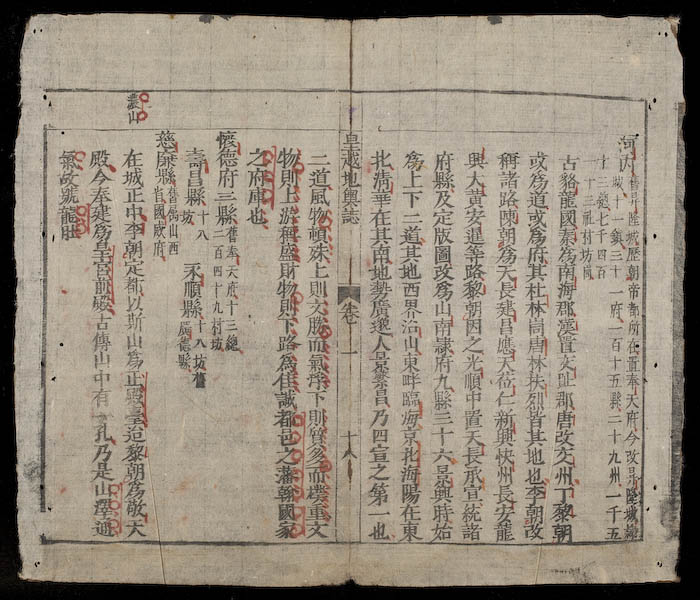 河內 舊昇隆城歷朝帝都所在置奉天府今改昇隆城總
城十一鎮三十一府一百十五縣二十九州一千五
十三總七千四百
一十三社村坊庯
古貉龍國秦爲南海郡漢置交趾郡唐改交州丁黎朝
或爲道或爲府其杜林峝唐林扶烈皆其地也李朝改
稱諸路陳朝爲天長建昌應天蒞仁新興快州長安龍
興大黃安暹等路黎朝因之光順中置天長承宣統諸
府縣及定版圖改爲山南隷府九縣三十六景興時始
爲上下二道其地西界沿山東畔臨海京北海陽在東
北淸華在其南地勢廣邈人景繁昌乃四宣之第一也
皇越地輿誌 卷一 十八
二道風物頓殊上則文勝而氣浮下則質多而樸重文
物則上游稱盛財物則下路爲佳誠都邑之藩翰國家
之府庫也
懷德府三縣 舊奉天府十三總
二百四十九村坊
壽昌縣 十八坊 永順縣 十八坊舊
廣德縣
慈廉縣 舊屬山西
省國威府
山
在城正中李朝定都以斯山爲正殿黎朝爲敬天
殿今奉建爲皇宮前殿古傳山中有一孔乃是山澤通
氣故號龍肚